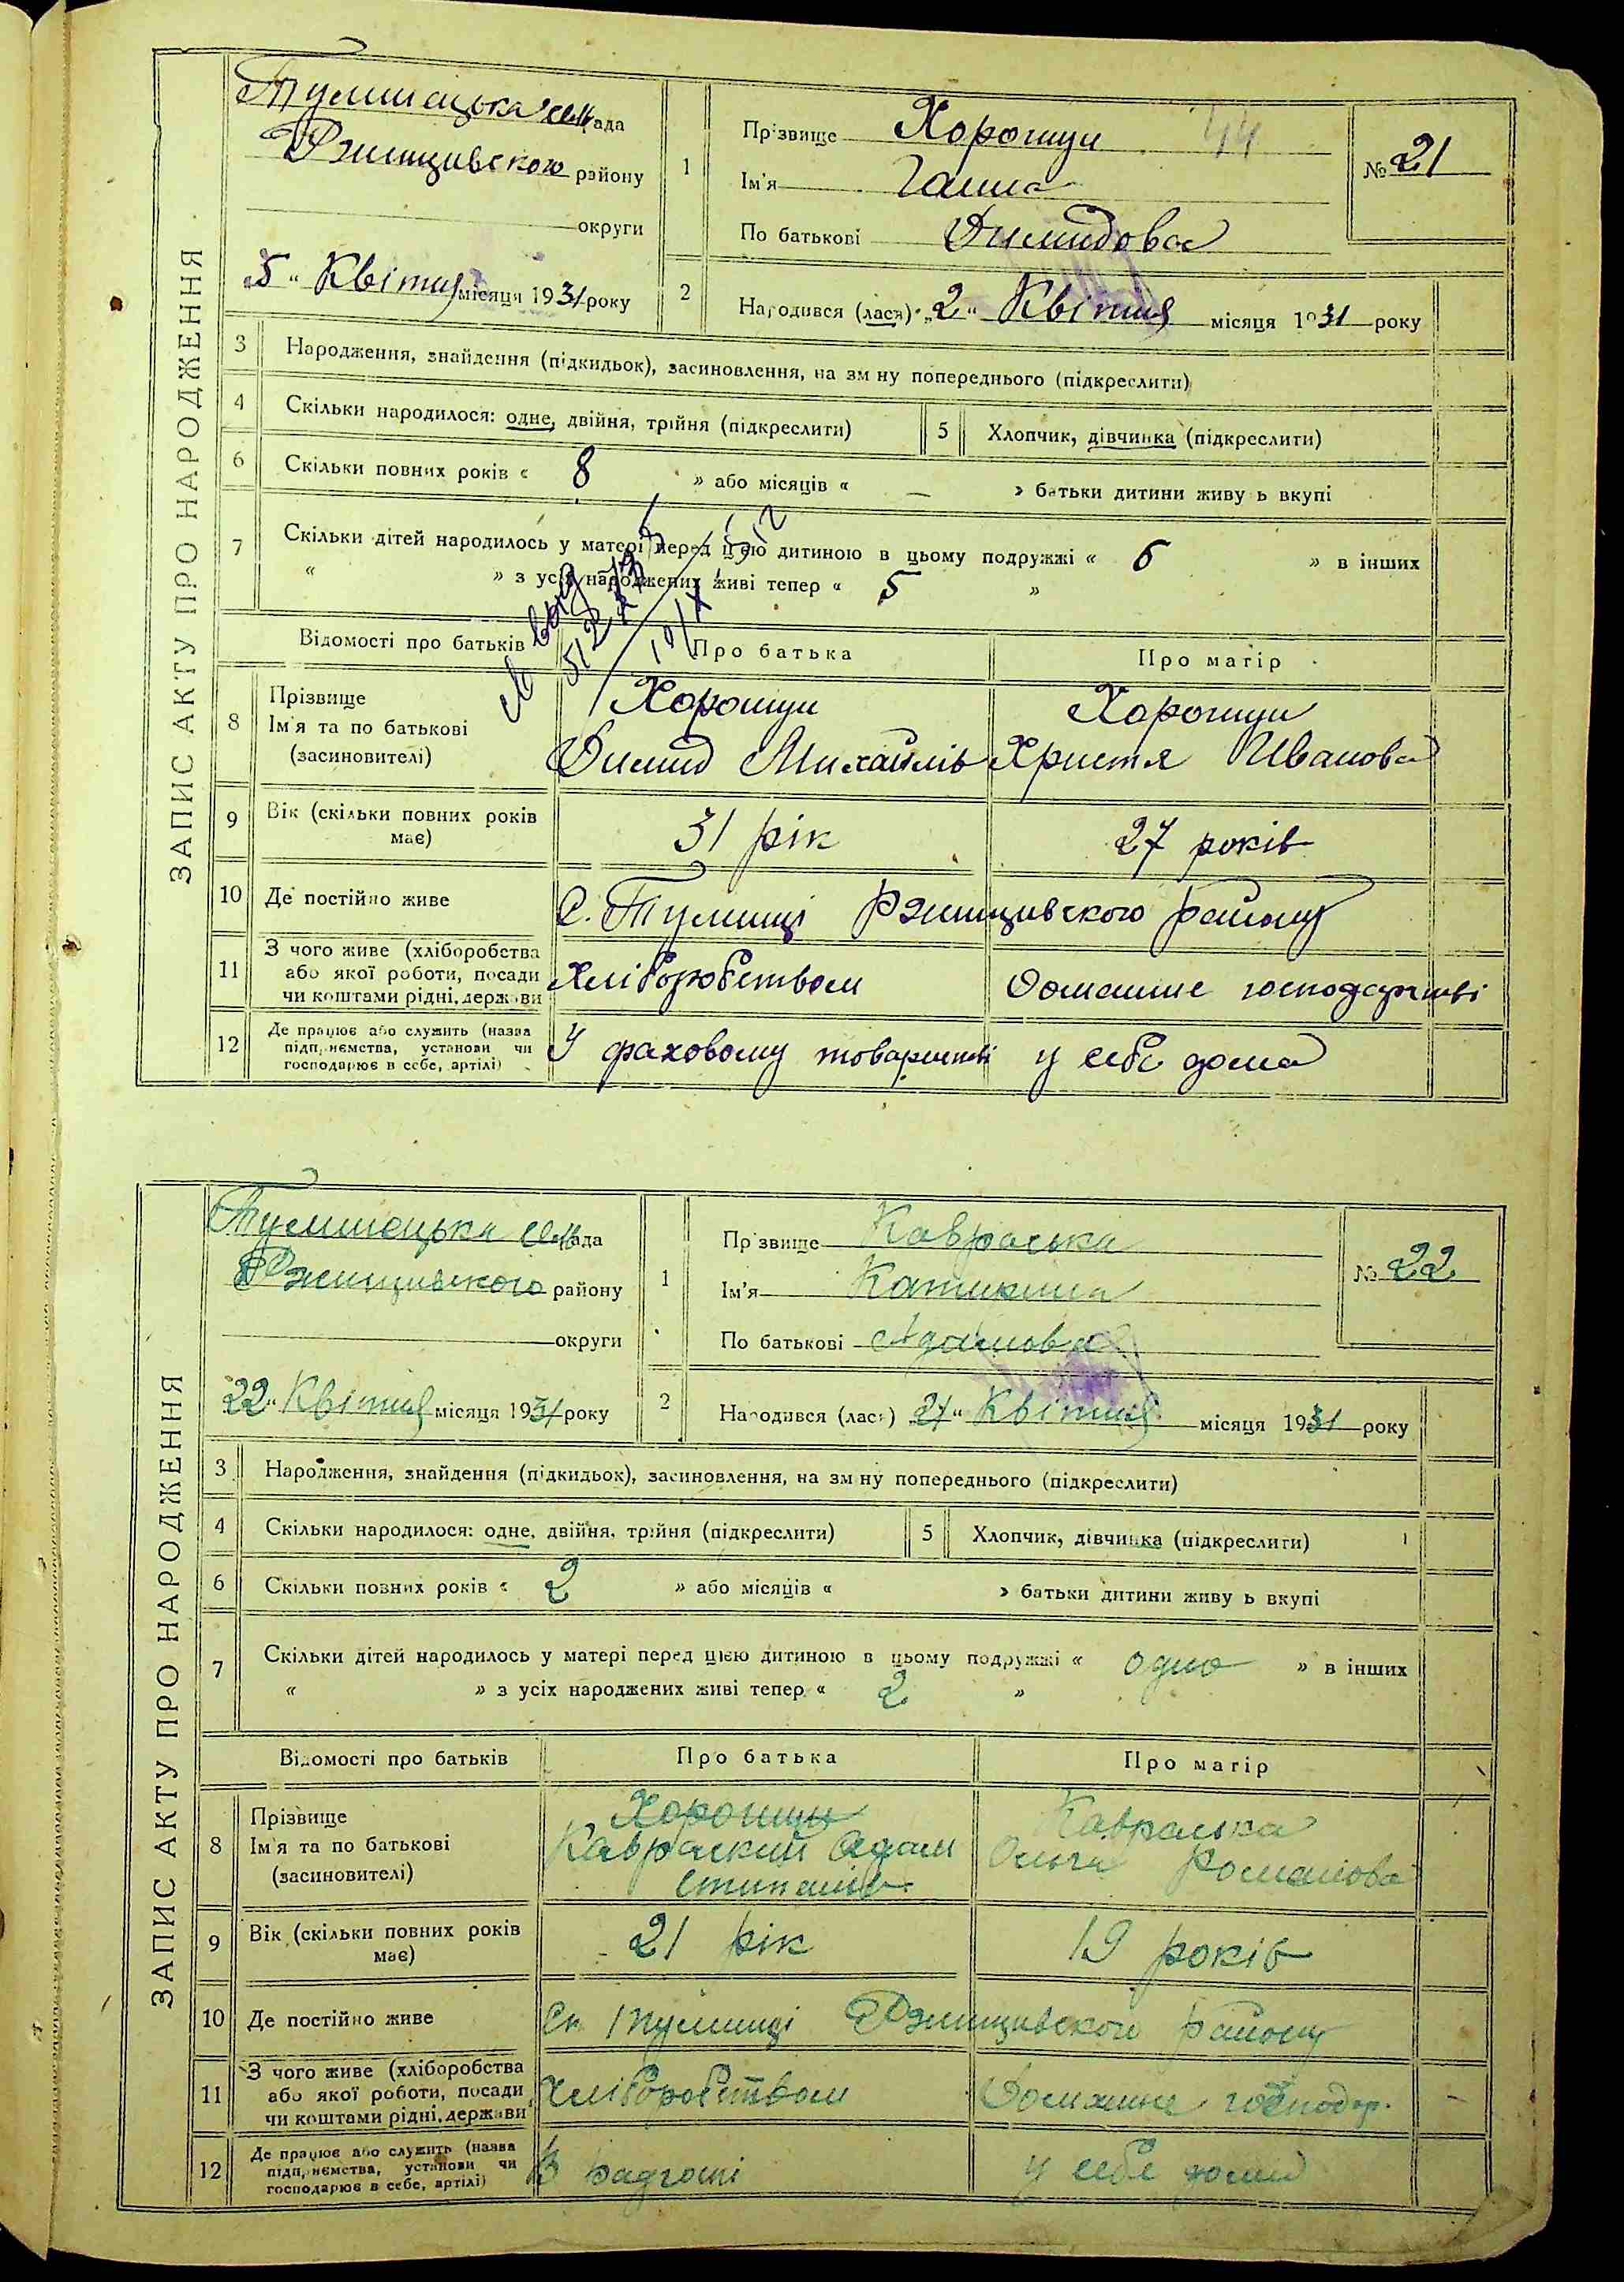 ЗАПИС АКТУ ПРО НАРОДЖЕННЯ
Тулинецька сельрада
Ржищивского району
округи
5 " Квітня місяця 1931 року
1
Прізвище Хорошун
Ім'я Ганна
По батькові Димидова
№ 21
2
Народився (лася) „2" Квітня місяця 1931 року
3 Народження, знайдення (підкидьок), засиновлення, на зміну попереднього (підкреслити)
4 Скільки народилося: одне, двійня, трійня (підкреслити)
5 Хлопчик, дівчинка (підкреслити)
6 Скільки повних років « 8 » або місяців « — » батьки дитини живуть вкупі
7 Скільки дітей народилось у матері перед цією дитиною в цьому подружжі « 6 » в інших
« » з усіх народжених живі тепер « 5 »
Відомості про батьків Про батька Про матір
8 Прізвище
Ім'я та по батькові
(засиновителі)
Хорошун
Димид Михайлів
Хорошун
Христя Иванова
9 Вік (скільки повних років
має)
31 рік 27 років
10 Де постійно живе С. Тулинці Ржищивского району
11 З чого живе (хліборобства
або якої роботи, посади
чи коштами рідні, держави
Хліборобством Домашне господарстві
12 Де працює або служить (назва
підприємства, установи чи
господарює в себе, артілі)
У фаховому товаристві у себе дома
ЗАПИС АКТУ ПРО НАРОДЖЕННЯ
Тулинецька сельрада
Ржищивского району
округи
22 " Квітня місяця 1931 року
1
Прізвище Кавраська
Ім'я
По батькові Адамова
№ 22
2
Народився (лася) 21 " Квітня місяця 1931 року
3 Народження, знайдення (підкидьок), засиновлення, на зміну попереднього (підкреслити)
4 Скільки народилося: одне, двійня, трійня (підкреслити)
5 Хлопчик, дівчинка (підкреслити)
6 Скільки повних років « 2 » або місяців « » батьки дитини живуть вкупі
7 Скільки дітей народилось у матері перед цією дитиною в цьому подружжі « одно » в інших
« » з усіх народжених живі тепер « 2 »
Відомості про батьків Про батька Про матір
8 Прізвище
Ім'я та по батькові
(засиновителі)
Хорошун
Кавраский Адам
Степанів
Кавраська
Ольга Романова
9 Вік (скільки повних років
має)
21 рік 19 років
10 Де постійно живе Тулинці Ржищивского району
11 З чого живе (хліборобства
або якої роботи, посади
чи коштами рідні, держави
Хліборобством Домашне господар.
12 Де працює або служить (назва
підприємства, установи чи
господарює в себе, артілі)
В радгоспі у себе дома